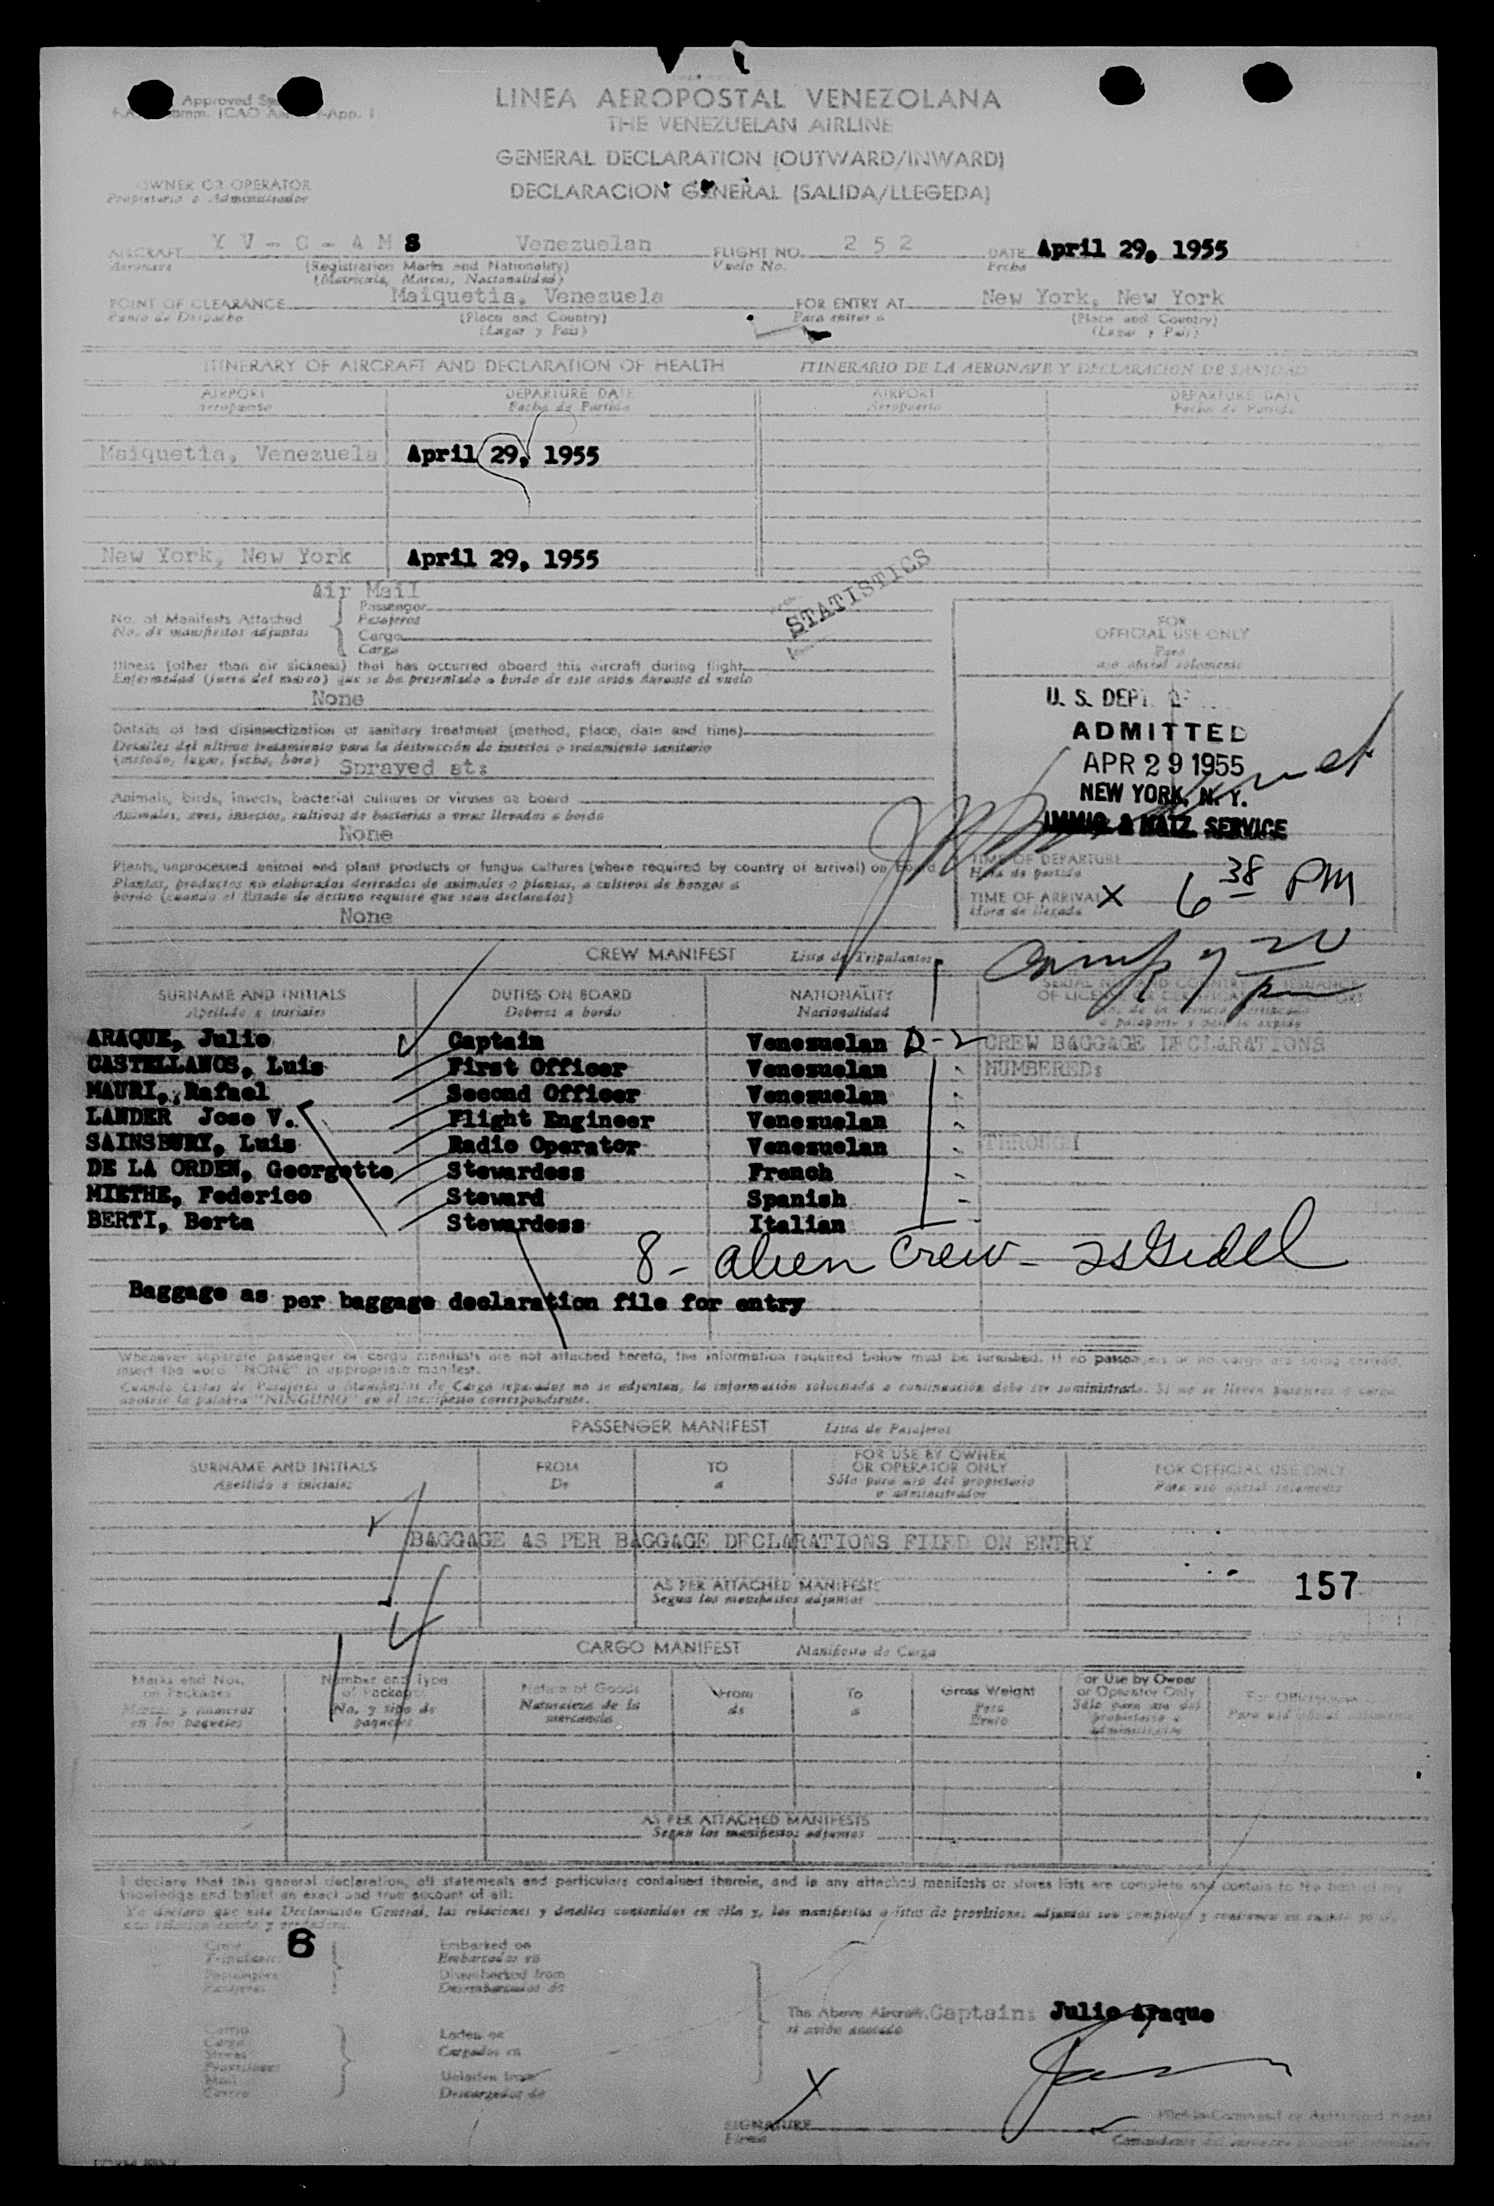 Approved
LINEA AEROPOSTAL VENEZOLANA
THE VENEZUELAN AIRLINE
GENERAL DECLARATION (OUTWARD/INWARD)
DECLARACION GENERAL (SALIDA/LLEGEDA)
OWNER OR OPERATOR
Propietario o Administrador
AIRCRAFT Y V - C - A M S Venezuelan FLIGHT NO. 2 5 2 DATE April 29, 1955
Aeronave (Registration Marks and Nationality) Vuelo No. Fecha
(Matricula, Marcas, Nacionalidad)
POINT OF CLEARANCE Maiquetia, Venezuela FOR ENTRY AT New York, New York
Punto de Despacho (Place and Country) Para entrar a (Place and Country)
(Lugar y Pais) (Lugar y Pais)
ITINERARY OF AIRCRAFT AND DECLARATION OF HEALTH ITINERARIO DE LA AERONAVE Y DECLARACION DE SANIDAD
AIRPORT DEPARTURE DATE AIRPORT DEPARTURE DATE
Aeropuerto Fecha de Partida Aeropuerto Fecha de Partida
Maiquetia, Venezuela April 29, 1955
New York, New York April 29, 1955
STATISTICS
Air Mail
No. of Manifests Attached Passenger
No. de manifiestos adjuntos Pasajeros
Cargo
Carga
Illness (other than air sickness) that has occurred aboard this aircraft during flight
Enfermedad (fuera del mareo) que se ha presentado a bordo de este avión durante el vuelo
None
Details of last disinsectization or sanitary treatment (method, place, date and time)
Detalles del ultimo tratamiento para la destrucción de insectos o tratamiento sanitario
(metodo, lugar, fecha, hora) Sprayed at:
Animals, birds, insects, bacterial cultures or viruses on board
Animales, aves, insectos, cultivos de bacterias o virus llevados a bordo
None
Plants, unprocessed animal and plant products or fungus cultures (where required by country of arrival) on board
Plantas, productos no elaborados derivados de animales o plantas, o cultivos de hongos a
bordo (cuando el Estado de destino requiere que sean declarados)
None
FOR
OFFICIAL USE ONLY
Para
uso oficial solamente
U. S. DEPT. OF
ADMITTED
APR 29 1955
NEW YORK, N. Y.
IMMIG. & NATZ. SERVICE
TIME OF DEPARTURE
Hora de partida
TIME OF ARRIVAL X 6 38 PM
Hora de llegada
CREW MANIFEST Lista de Tripulantes
SURNAME AND INITIALS DUTIES ON BOARD NATIONALITY
Apellido e iniciales Deberes a bordo Nacionalidad
ARAQUE, Julio Captain Venezuelan D-2 CREW BAGGAGE DECLARATIONS
CASTELLANOS, Luis First Officer Venezuelan NUMBERED:
MAURI, Rafael Second Officer Venezuelan
LANDER Jose V. Flight Engineer Venezuelan
SAINSBURY, Luis Radio Operator Venezuelan THROUGH
DE LA ORDEN, Georgette Stewardess French
MIETHE, Federico Steward Spanish
BERTI, Berta Stewardess Italian
8 - alien crew -
Baggage as per baggage declaration file for entry
Whenever separate passenger or cargo manifests are not attached hereto, the information required below must be furnished. If no passengers or no cargo are being carried,
insert the word "NONE" in appropriate manifest.
Cuando Listas de Pasajeros o Manifiestos de Carga separados no se adjuntan, la información solicitada a continuación debe ser suministrada. Si no se llevan pasajeros o carga
anotese la palabra "NINGUNO" en el manifiesto correspondiente.
PASSENGER MANIFEST Lista de Pasajeros
SURNAME AND INITIALS FROM TO FOR USE BY OWNER FOR OFFICIAL USE ONLY
Apellido e iniciales De a OR OPERATOR ONLY Para uso oficial solamente
Sólo para uso del propietario
o administrador
BAGGAGE AS PER BAGGAGE DECLARATIONS FILED ON ENTRY
AS PER ATTACHED MANIFESTS
Segun los manifiestos adjuntos
157
14
CARGO MANIFEST Manifiesto de Carga
Marks and Nos. Number and Type Nature of Goods From To Gross Weight or Use by Owner
on Packages of Packages Naturaleza de la de a Peso or Operator Only
Marcas y números No. y tipo de mercancia Bruto Sólo para uso del
en los paquetes paquetes propietario o
administrador
AS PER ATTACHED MANIFESTS
Segun los manifiestos adjuntos
I declare that this general declaration, all statements and particulars contained therein, and in any attached manifests or stores lists are complete and contain to the best of my
knowledge and belief an exact and true account of all:
Yo declaro que esta Declaración General, las relaciones y detalles contenidos en ella y, los manifiestos o listas de provisiones adjuntos son completos
Crew 8 Embarked on
Tripulantes Embarcados en
Passengers Disembarked from
Pasajeros Desembarcados de
Cargo Laden on
Carga Cargados en
Stores
Provisiones Unladen from
Mail Descargados de
Correo
The Above Aircraft Captain: Julio Araque
el avión anotado
X
SIGNATURE
Firma
Pilot-in-Command or Authorized Agent